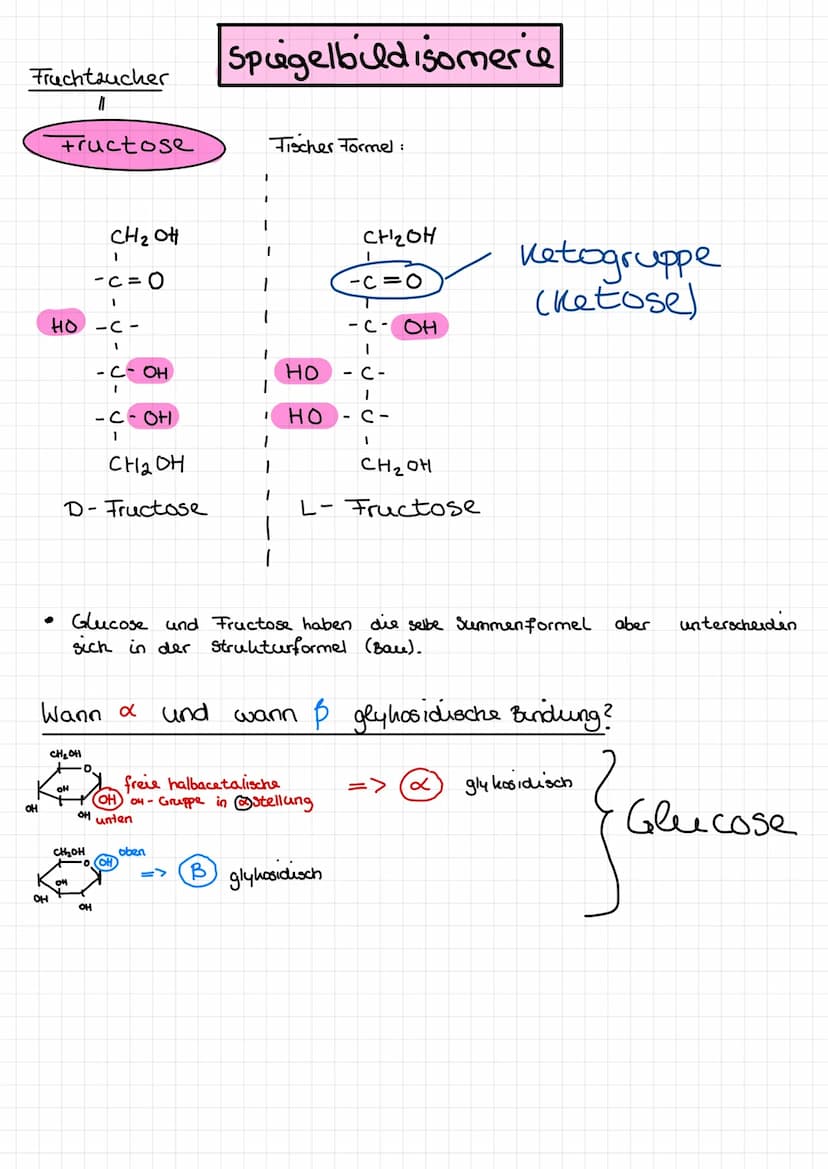 Spiegelbildisomerie
Fruchtzucker
=
Fructose
Fischer Formel:
CH₂OH
-C=O
HO -C-
-C-OH
-C-OH
CH₂OH
D-Fructose
CH₂OH
-C=O
-C-OH
HO -C-
HO -C-
CH₂OH
L-Fructose
Ketogruppe
(Ketose)
• Glucose und Fructose haben die selbe Summenformel aber unterscheiden
sich in der Strukturformel (Bau).
Wann α und wann β glykosidische Bindung?
CH₂OH
O
OH
OH
OH
OH
freie halbacetalische
OH-Gruppe in α Stellung
unten
=> α glykosidisch
CH₂OH
O
OH
oben
OH
OH
OH
=> β glykosidisch
Glucose